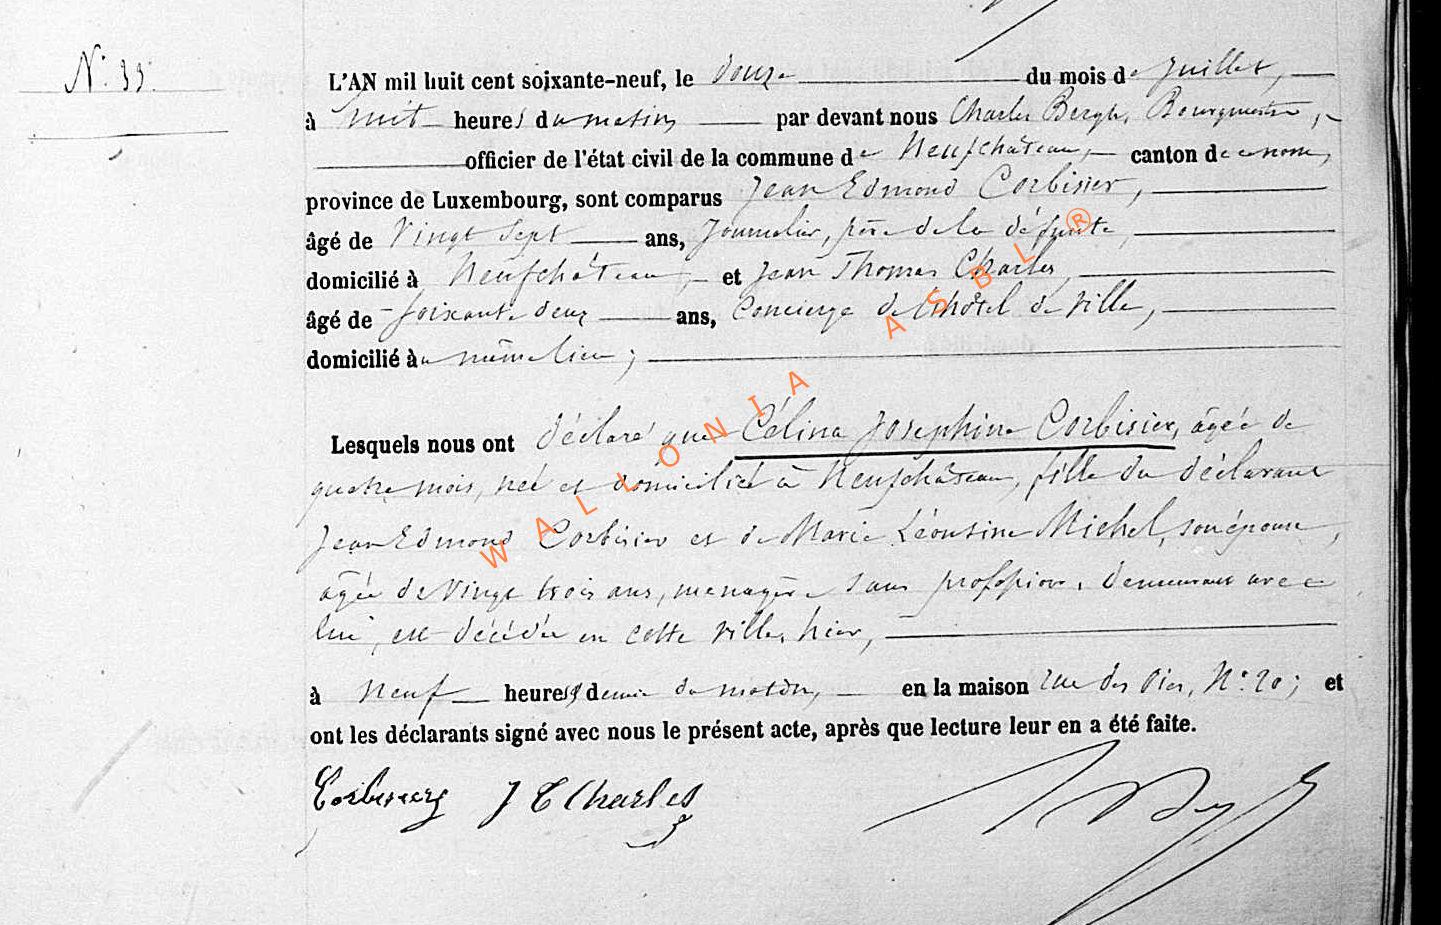 N° 33.
L'AN mil huit cent soixante-neuf, le douze du mois de Juillet,
à huit heures du matin par devant nous Charles Bergh, Bourgmestre,
officier de l'état civil de la commune de Neufchâteau, canton de ce nom,
province de Luxembourg, sont comparus Jean Edmond Corbisier,
âgé de Vingt Sept ans, Journalier, père de la défunte,
domicilié à Neufchâteau, et Jean Thomas Charles,
âgé de soixante deux ans, Concierge de l'hôtel de ville,
domicilié au même lieu;
Lesquels nous ont déclaré que Célina Josephine Corbisier, âgée de
quatre mois, née et domiciliée à Neufchâteau, fille du déclarant
Jean Edmond Corbisier et de Marie Léontine Michel, son épouse,
âgée de Vingt trois ans, menagère sans profession, demeurant avec
lui, est décédée en cette ville, hier,
à neuf heures & demie du matin, en la maison rue des Oies, N° 20; et
ont les déclarants signé avec nous le présent acte, après que lecture leur en a été faite.
J T Charles
WALLONIA ASBL ®